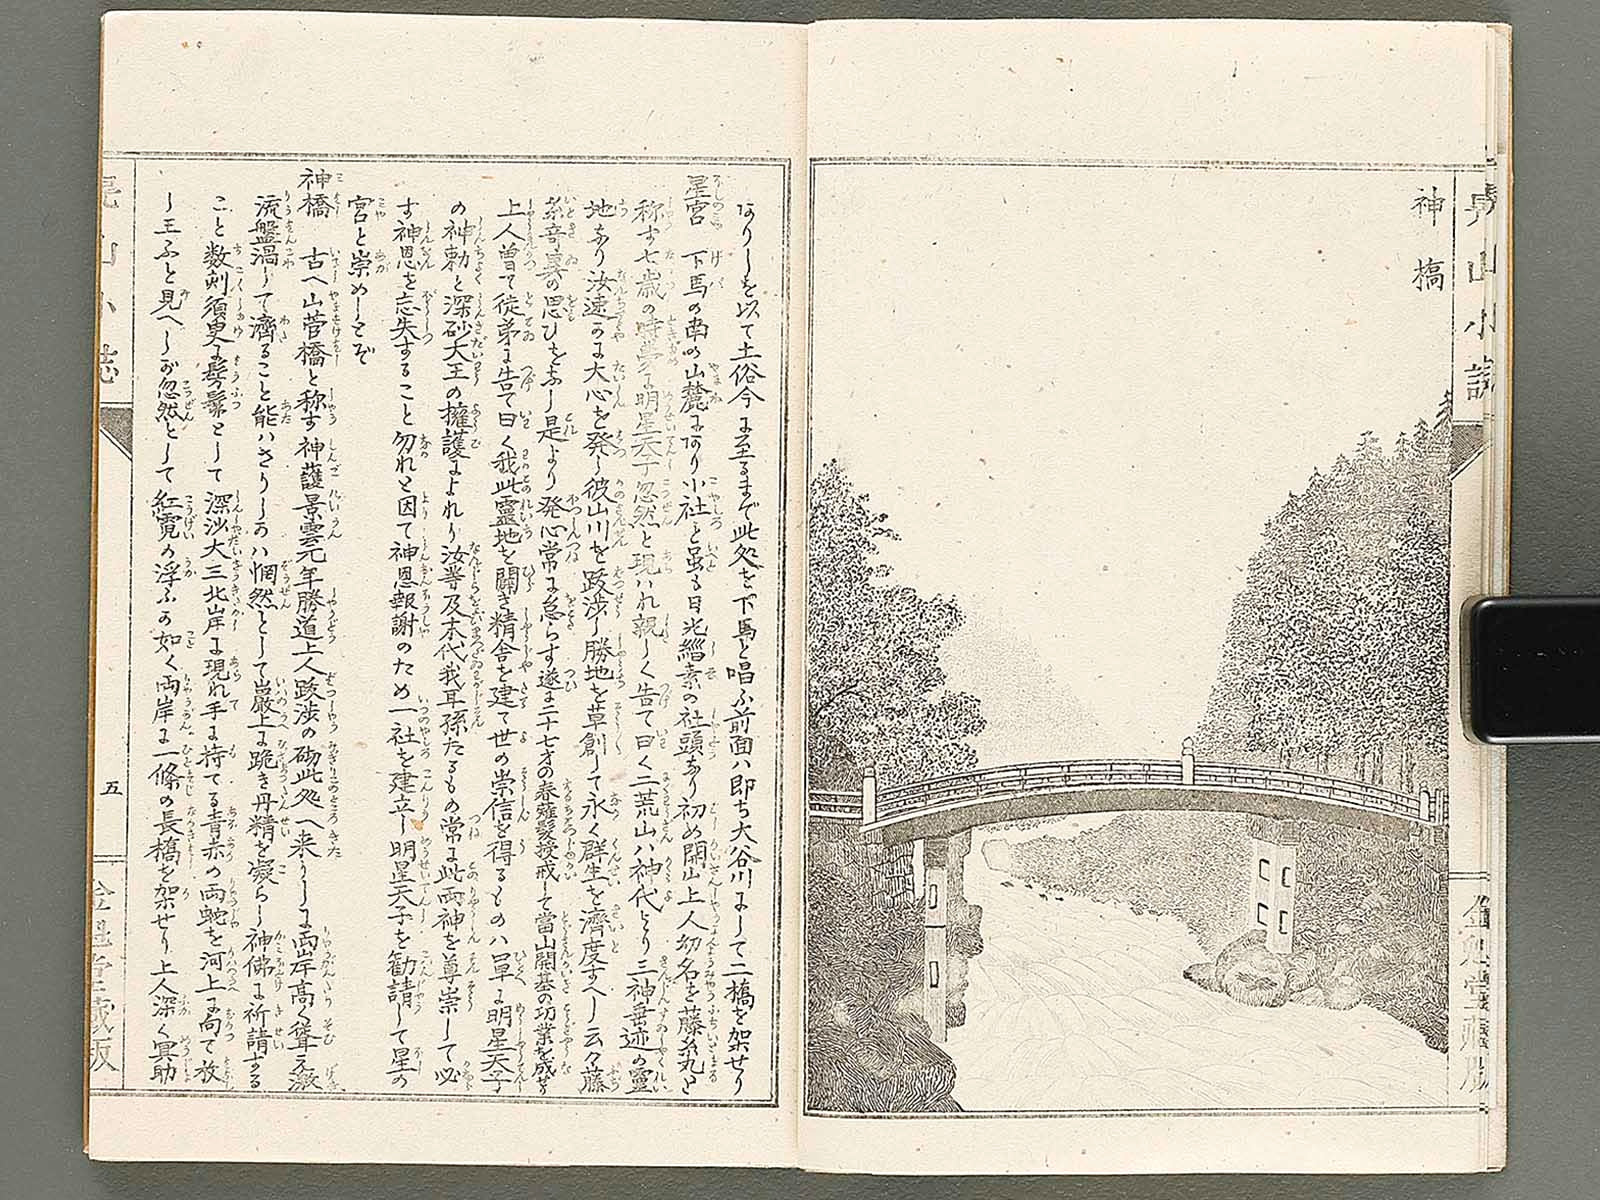 神橋
晃山小誌
ありしを以て土俗今に至るまで此処を下馬と唱ふ前面ハ即ち大谷川にして二橋を架せり
星宮　下馬の南の山麓にあり小社と虽も日光緇素の社頭なり初め開山上人幼名を藤糸丸と
称す七歳の時夢に明星天子忽然と現ハれ親しく告て曰く二荒山ハ神代より三神垂迹の靈
地なり汝速かに大心を発し彼山川を跋渉し勝地を草創して永く群生を濟度すへし云々藤
糸奇異の思ひをなし是より発心常に怠らす遂に二十七才の春薙髪授戒して當山開基の功業を成せり
上人曽て徒弟に告て曰く我此靈地を開き精舎を建て世の崇信を得るものハ単に明星天子
の神勅と深砂大王の擁護によれり汝等及末代我耳孫たるもの常に此両神を尊崇して必
す神恩を忘失すること勿れと因て神恩報謝のため一社を建立し明星天子を勧請して星の
宮と崇めしとぞ
神橋　古へ山菅橋と称す神護景雲元年勝道上人跋渉の砌此処へ来りしに両岸高く聳え激
流盤渦して濟ること能ハさりしかハ惘然として巌上に跪き丹精を凝らし神佛に祈請する
こと数刻須臾に髣髴として深沙大王北岸に現れ手に持てる青赤の両蛇を河上に向て放
し玉ふと見へしが忽然として紅霓の浮ふか如く両岸に一條の長橋を架せり上人深く冥助
五